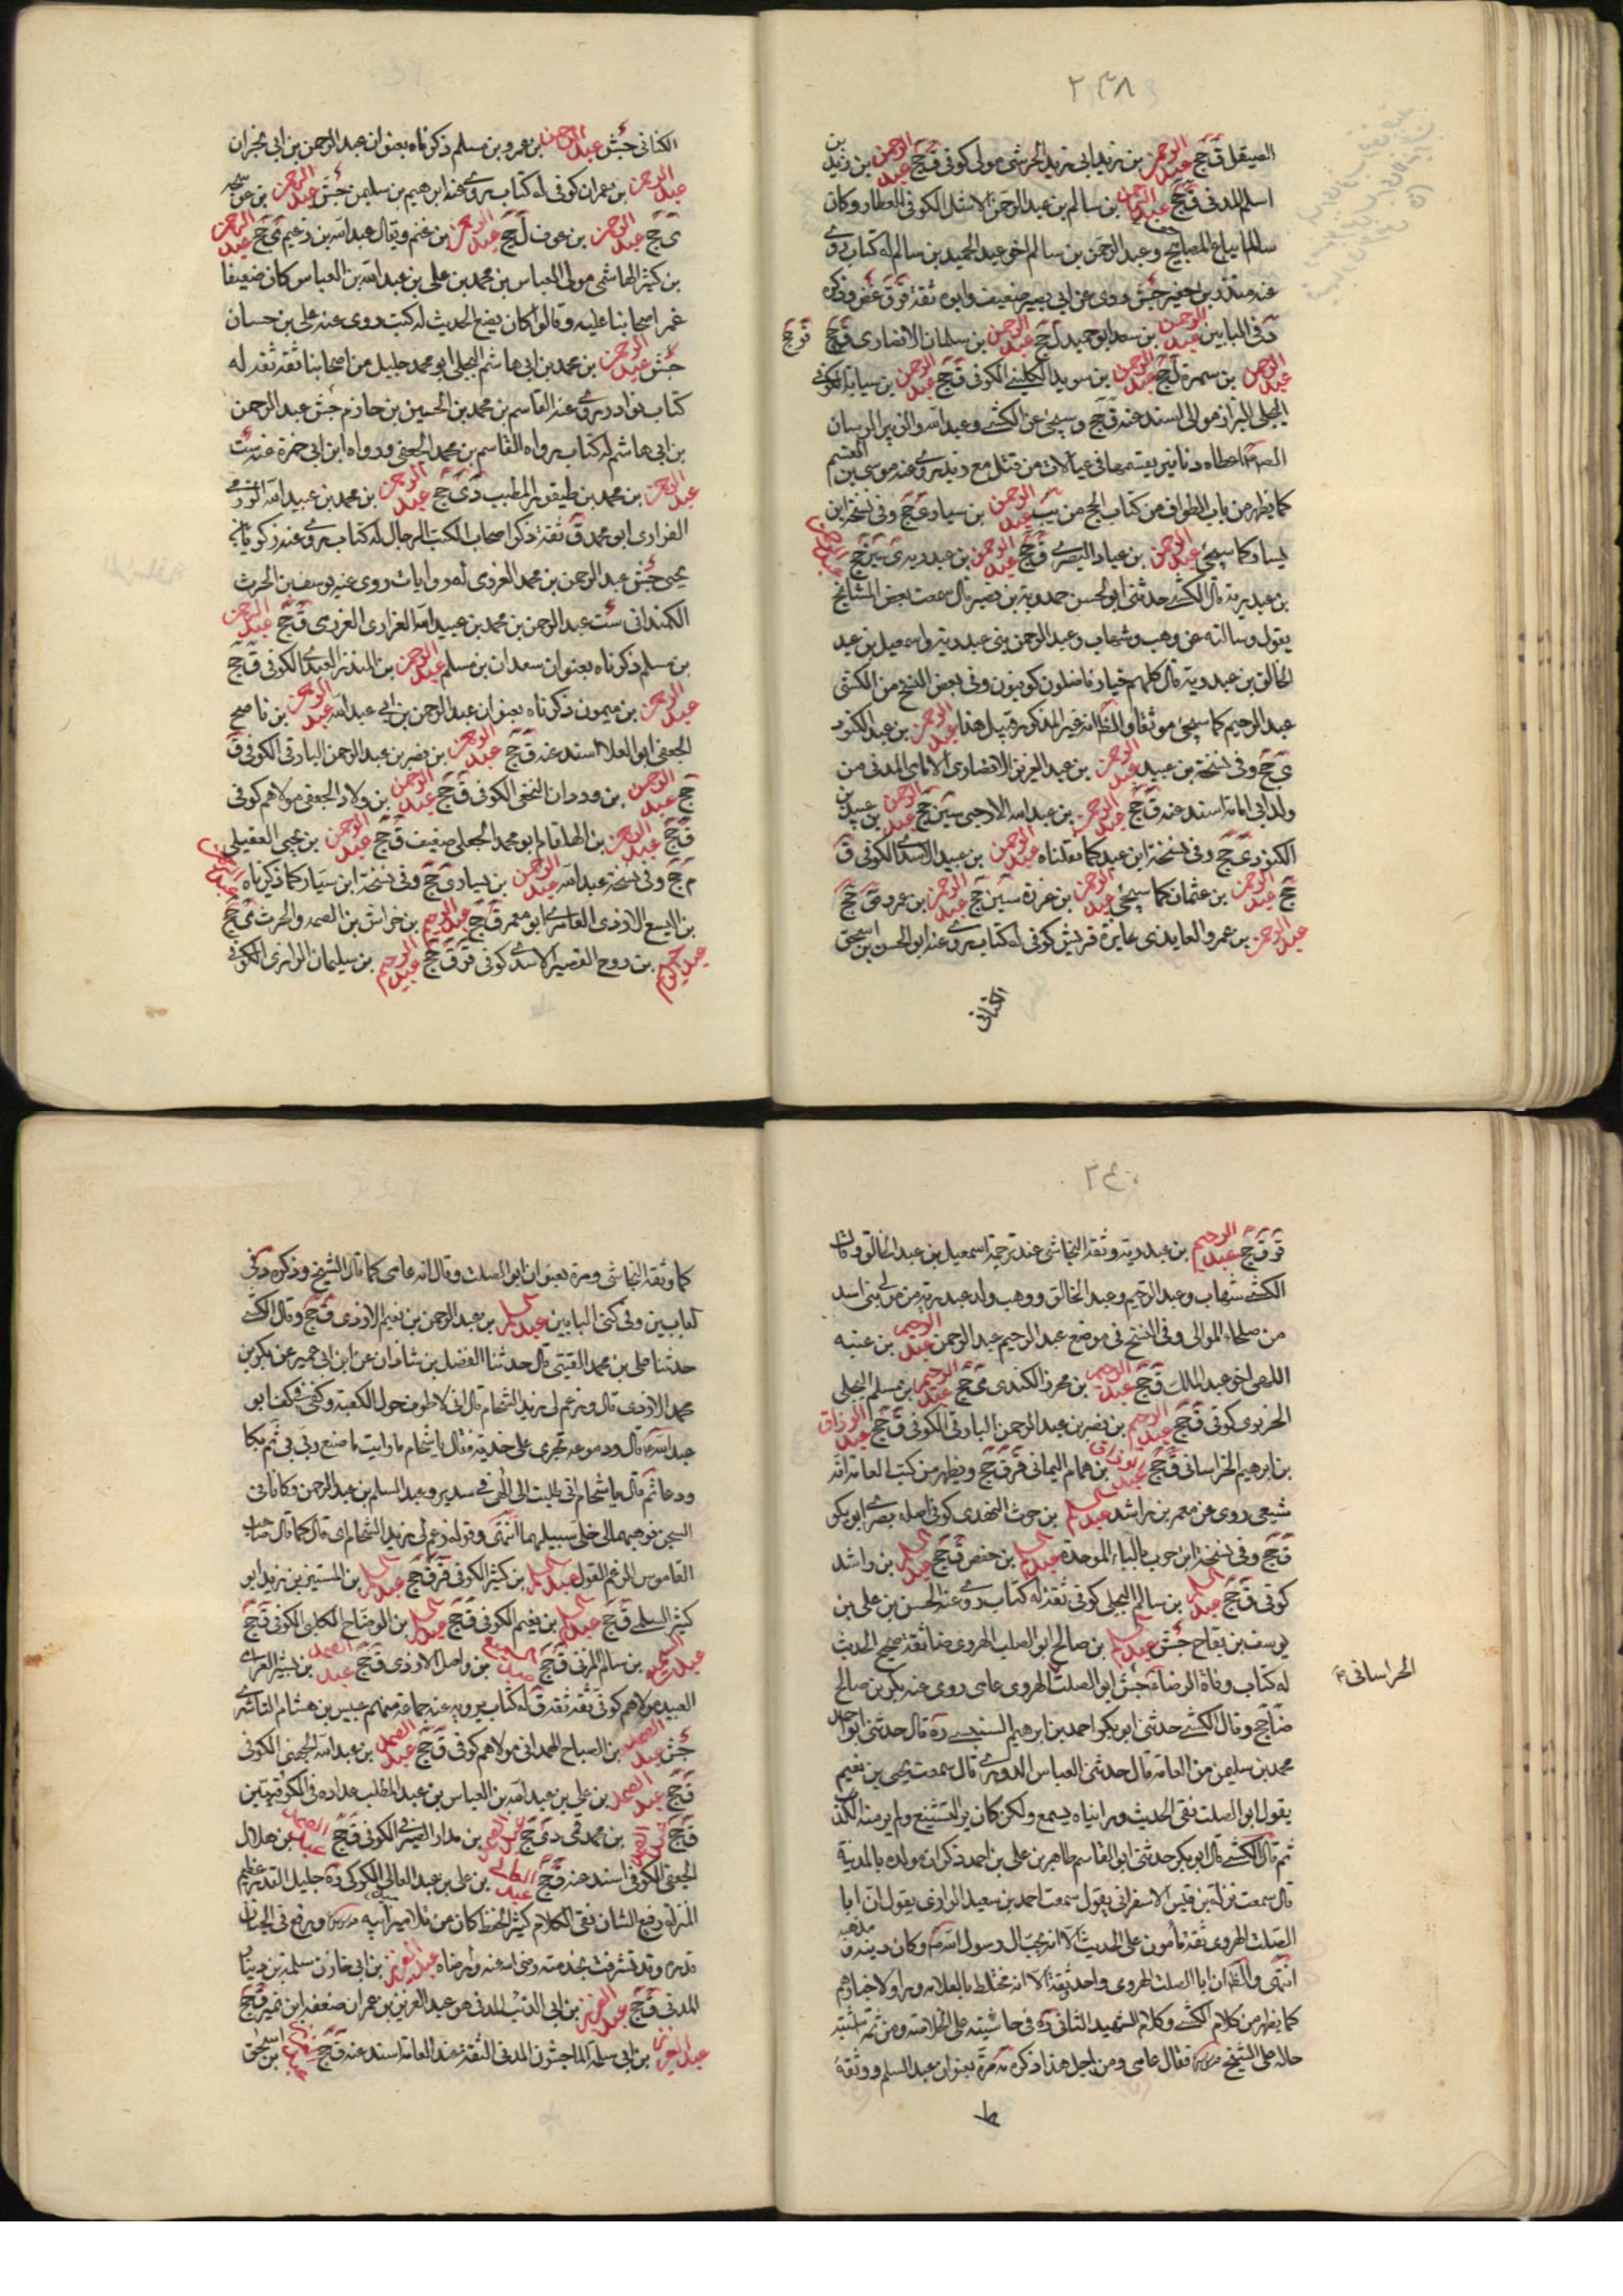 ٢٣٨
الصيقل ق جخ عبد الرحمن بن زيد ابى زيد الحرشى مولى كوفى ق جخ عبد الرحمن بن زيد بن
اسلم المدنى ق جخ عبد الرحمن بن سالم بن عبد الرحمن الاشل الكوفى العطار وكان
سالم بياع المصاحف وعبد الرحمن بن سالم اخو عبد الحميد بن سالم له كتاب روى
عنه منذر بن جفير جش روى عن ابى بصير ضعيف وابوه ثقة غض وذكره
د فى البابين عبد الرحمن بن سعد ابو حميد ل جخ عبد الرحمن بن سلمان الانصارى ق جخ
عبد الرحمن بن سمرة ل جخ عبد الرحمن بن سويد الكلبى الكوفى ق جخ عبد الرحمن بن سيابة الكوفى
البجلى البزاز مولى اسند عنه ق جخ وسيجئ عن الكشى وعبد الله والزبير الرسان
اعطاه دنانير يقسمها فى عيالات من قتل مع زيد روى عنه موسى بن القسم
كما يظهر من باب الطواف من كتاب الحج من يب عبد الرحمن بن سيار جخ وفى نسخة ابن
يسار كما سيجئ عبد الرحمن بن عياد البصرى ق جخ عبد الرحمن بن عبد ربه ى سين جخ
بن عبد ربه قال الكشى حدثنى ابو الحسن حمدويه بن نصير قال سمعت بعض المشايخ
يقول وسالته عن وهب وشهاب وعبد الرحمن بنى عبد ربه واسمعيل بن عبد
الخالق بن عبد ربه قال كلهم خيار فاضلون كوفيون وفى بعض النسخ من الكشى
عبد الرحيم كما سيجئ موثقا والظ انه غير المذكور قبيل هذا عبد الرحمن بن عبد الكنود
ى جخ وفى نسخة بن عبيد عبد الرحمن بن عبد العزيز الانصارى الامامى المدنى من
ولد ابى امامة اسند عنه ق جخ عبد الرحمن بن عبد الله الارحبى سين جخ عبد الرحمن بن عبيد بن
الكنود ى جخ وفى نسخة ابن عبد كما نقلناه عبد الرحمن بن عبيد الاسدى الكوفى ق
جخ عبد الرحمن بن عثمان كما سيجئ عبد الرحمن بن عزرة سين جخ عبد الرحمن بن عمرو ق جخ
عبد الرحمن بن عمرو العايذى عايذة قريش كوفى له كتاب روى عنه ابو الحسن بن اسحق
الكنانى
الكنانى جش عبد الرحمن بن عمرو بن مسلم ذكرناه بعنوان عبد الرحمن بن ابى نجران
عبد الرحمن بن عمران كوفى له كتاب يروى عنه ابرهيم بن سليمن جش عبد الرحمن بن عوسجه
ى جخ عبد الرحمن بن عوف ل جخ عبد الرحمن بن غنم ويقال عبد الله بن زغيم ى جخ عبد الرحمن
بن كثير الهاشمى مولى العباس بن محمد بن على بن عبد الله بن العباس كان ضعيفا
غمز اصحابنا عليه وقالوا كان يضع الحديث له كتب روى عنه على بن حسان
جش عبد الرحمن بن محمد بن ابى هاشم البجلى ابو محمد جليل من اصحابنا ثقة ثقة له
كتاب نوادر يروى عنه القاسم بن محمد بن الحسين بن حازم جش عبد الرحمن
بن ابى هاشم له كتاب رواه القاسم بن محمد الجعفى ورواه ابن ابى حمزة عنه ست
عبد الرحمن بن محمد بن طيفور المطبب دى جخ عبد الرحمن بن محمد بن عبيد الله العرزمى
الفزارى ابو محمد ق ثقة ذكر اصحاب الكتب الرجال له كتاب يروى عنه زكريا بن
يحيى جش عبد الرحمن بن محمد العرزمى له روايات روى عنه يوسف بن الحرث
الكمندانى ست عبد الرحمن بن محمد بن عبيد الله الفزارى العرزمى ق جخ عبد الرحمن
بن مسلم ذكرناه بعنوان سعدان بن مسلم عبد الرحمن بن المنذر العبدى الكوفى ق جخ
عبد الرحمن بن ميمون ذكرناه بعنوان عبد الرحمن بن ابى عبد الله عبد الرحمن بن ناصح
الجعفى ابو العلا اسند عنه ق جخ عبد الرحمن بن نصر بن عبد الرحمن البارقى الكوفى ق
جخ عبد الرحمن بن وردان النخعى الكوفى ق جخ عبد الرحمن بن ولاد الجعفى مولاهم كوفى
ق جخ عبد الرحمن بن الهلقام ابو محمد العجلى ضعيف ق جخ عبد الرحمن بن يحيى العقيلى
م جخ وفى نسخة عبد الله عبد الرحمن بن يسار ى جخ وفى نسخة ابن سيار كما ذكرناه
بن اليسع الازدى الغامدى ابو معمر ق جخ عبد الرحيم بن خراش بن الصمد والحرث ى جخ
عبد الرحيم بن روح القصير الاسدى كوفى قر ق جخ عبد الرحيم بن سليمان الرازى الكوفى
٢٤٠
قر ق جخ عبد الرحيم بن عبد ربه وثقه النجاشى عند ترجمة اسمعيل بن عبد الخالق وقال
الكشى شهاب وعبد الرحيم وعبد الخالق ووهب ولد عبد ربه من موالى بنى اسد
من صلحاء الموالى وفى النسخ فى موضع عبد الرحيم عبد الرحمن عبد الرحيم بن عتبه
اللهبى اخو عبد الملك ق جخ عبد الرحيم بن محرز الكندى ى جخ عبد الرحيم بن مسلم البجلى
الجريرى كوفى ق جخ عبد الرحيم بن نصر بن عبد الرحمن البارقى الكوفى ق جخ عبد الرزاق
بن ابرهيم الخراسانى ق جخ عبد الرزاق بن همام اليمانى قر ق جخ ويظهر من كتب العامة انه
شيعى روى عن معمر بن راشد عبد السلم بن حرث النهدى كوفى اصله بصرى ابو بكر
ق جخ وفى نسخة ابن حرب بالباء الموحدة عبد السلم بن حفص ق جخ عبد السلم بن راشد
كوفى ق جخ عبد السلم بن سالم البجلى كوفى ثقة له كتاب روى عنه الحسن بن على بن
يوسف بن بقاح جش عبد السلم بن صالح ابو الصلت الهروى ضا ثقة صحيح الحديث
له كتاب وفاة الرضا ع جش ابو الصلت الهروى عامى روى عنه بكر بن صالح
الخراسانى
ضا جخ وقال الكشى حدثنى ابو بكر احمد بن ابرهيم السنسنى ره قال حدثنى ابو احمد
محمد بن سليمن من العامة قال حدثنى العباس الدورى قال سمعت يحيى بن نعيم
يقول ابو الصلت نقى الحديث ورايناه يسمع ولكن كان يرى التشيع ولم ير منه الكذب
ثم قال الكشى قال ابو بكر حدثنى ابو القاسم طاهر بن على بن احمد ذكر ان مولده بالمدينة
قال سمعت نزلة بن قيس الاسفراينى يقول سمعت احمد بن سعيد الرازى يقول ان ابا
الصلت الهروى ثقة مأمون على الحديث الا انه يحب ال رسول الله ص وكان دينه ومذهبه
انتهى والظ ان ابا الصلت الهروى واحد ثقة الا انه مختلط بالعامة وراو لاخبارهم
كما يظهر من كلام الكشى وكلام الشهيد الثانى ره فى حاشيته على الخلاصة ومن ثمة اشتبه
حاله على الشيخ فقال عامى ومن اجل هذا ذكره مه مرة بعنوان عبد السلم ووثقه
كما وثقه النجاشى ومرة بعنوان ابو الصلت وقال انه عامى كما قال الشيخ وذكره د فى
البابين وفى كنى البابين عبد السلم بن عبد الرحمن بن نعيم الازدى ق جخ وقال الكشى
حدثنا على بن محمد القتيبى قال حدثنا الفضل بن شاذان عن ابن ابى عمير عن بكر بن
محمد الازدى قال وزعم لى زيد الشحام قال انى لاطوف حول الكعبة وكفى فى كف ابو
عبد الله ع قال ودموعه تجرى على خديه فقال يا شحام ما رايت ما صنع ربى بى ثم بكا
ودعا ثم قال يا شحام انى طلبت الى الهى فى سدير وعبد السلم بن عبد الرحمن وكانا فى
السجن فوهبهما لى خلى سبيلهما انتهى وقوله زعم لى زيد الشحام اى قال كما قال صاحب
القاموس الزعم القول عبد السلم بن كثير الكوفى قر ق جخ عبد السلم بن المستنير بن زيد ابو
كثير السلمى ق جخ عبد السلم بن نعيم الكوفى ق جخ عبد السلم بن الوضاح الكلبى الكوفى ق جخ
عبد السميع بن سالم المزنى ق جخ عبد السميع بن واصل الازدى ق جخ عبد الصمد بن بشير العرامى
العبدى مولاهم كوفى ثقة ثقة ق له كتاب يرويه عنه جماعة منهم عبيس بن هشام الناشرى
جش عبد الصمد بن الصباح الهمدانى مولاهم كوفى ق جخ عبد الصمد بن عبد الله الجهنى الكوفى
ق جخ عبد الصمد بن على بن عبد الله بن العباس بن عبد المطلب عداده فى الكوفيين
ق جخ عبد الصمد بن محمد قمى دى جخ عبد الصمد بن مدار الصيرفى الكوفى ق جخ عبد الصمد بن هلال
الجعفى الكوفى اسند عنه ق جخ عبد العالى بن على بن عبد العالى الكركى ره جليل القدر عظيم
المنزلة رفيع الشان نقى الكلام كثير الحفظ كان من تلاميذ ابيه ورفع فى الجنان
قدره وقد تشرفت بخدمته رضى الله عنه وارضاه عبد العزيز بن ابى حازن سلمة بن دينار
المدنى ق جخ عبد العزيز بن ابى الذئب المدنى هو عبد العزيز بن عمران ضعفه ابن نمير ق جخ
عبد العزيز بن ابى سلمة الماجشون المدنى الثقة عند العامة اسند عنه ق جخ بن اسحق